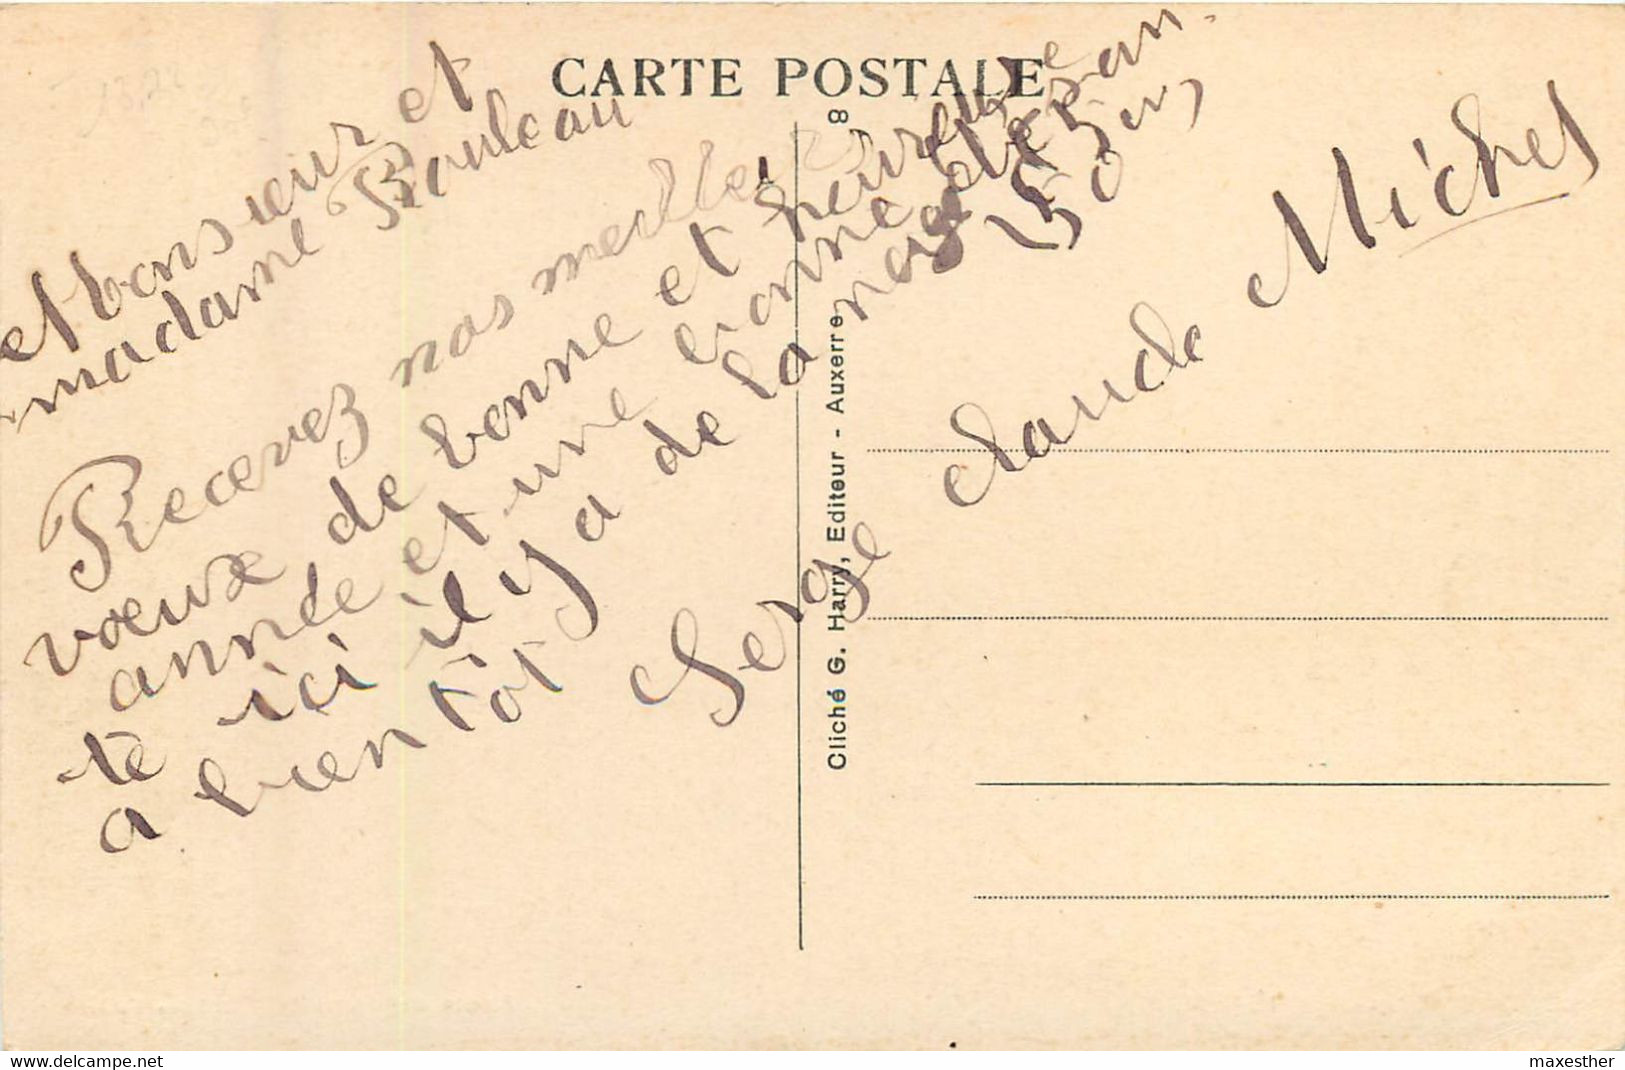 CARTE POSTALE
et bonsieur et
madame Rouleau
Recevez nos meilleurs
voeux de bonne et heureuse
année et une bonne
té ici il y a de la neige
a bientôt
Serge claude Michel
8
Cliché G. Harry, Editeur - Auxerre
www.delcampe.net
maxesther